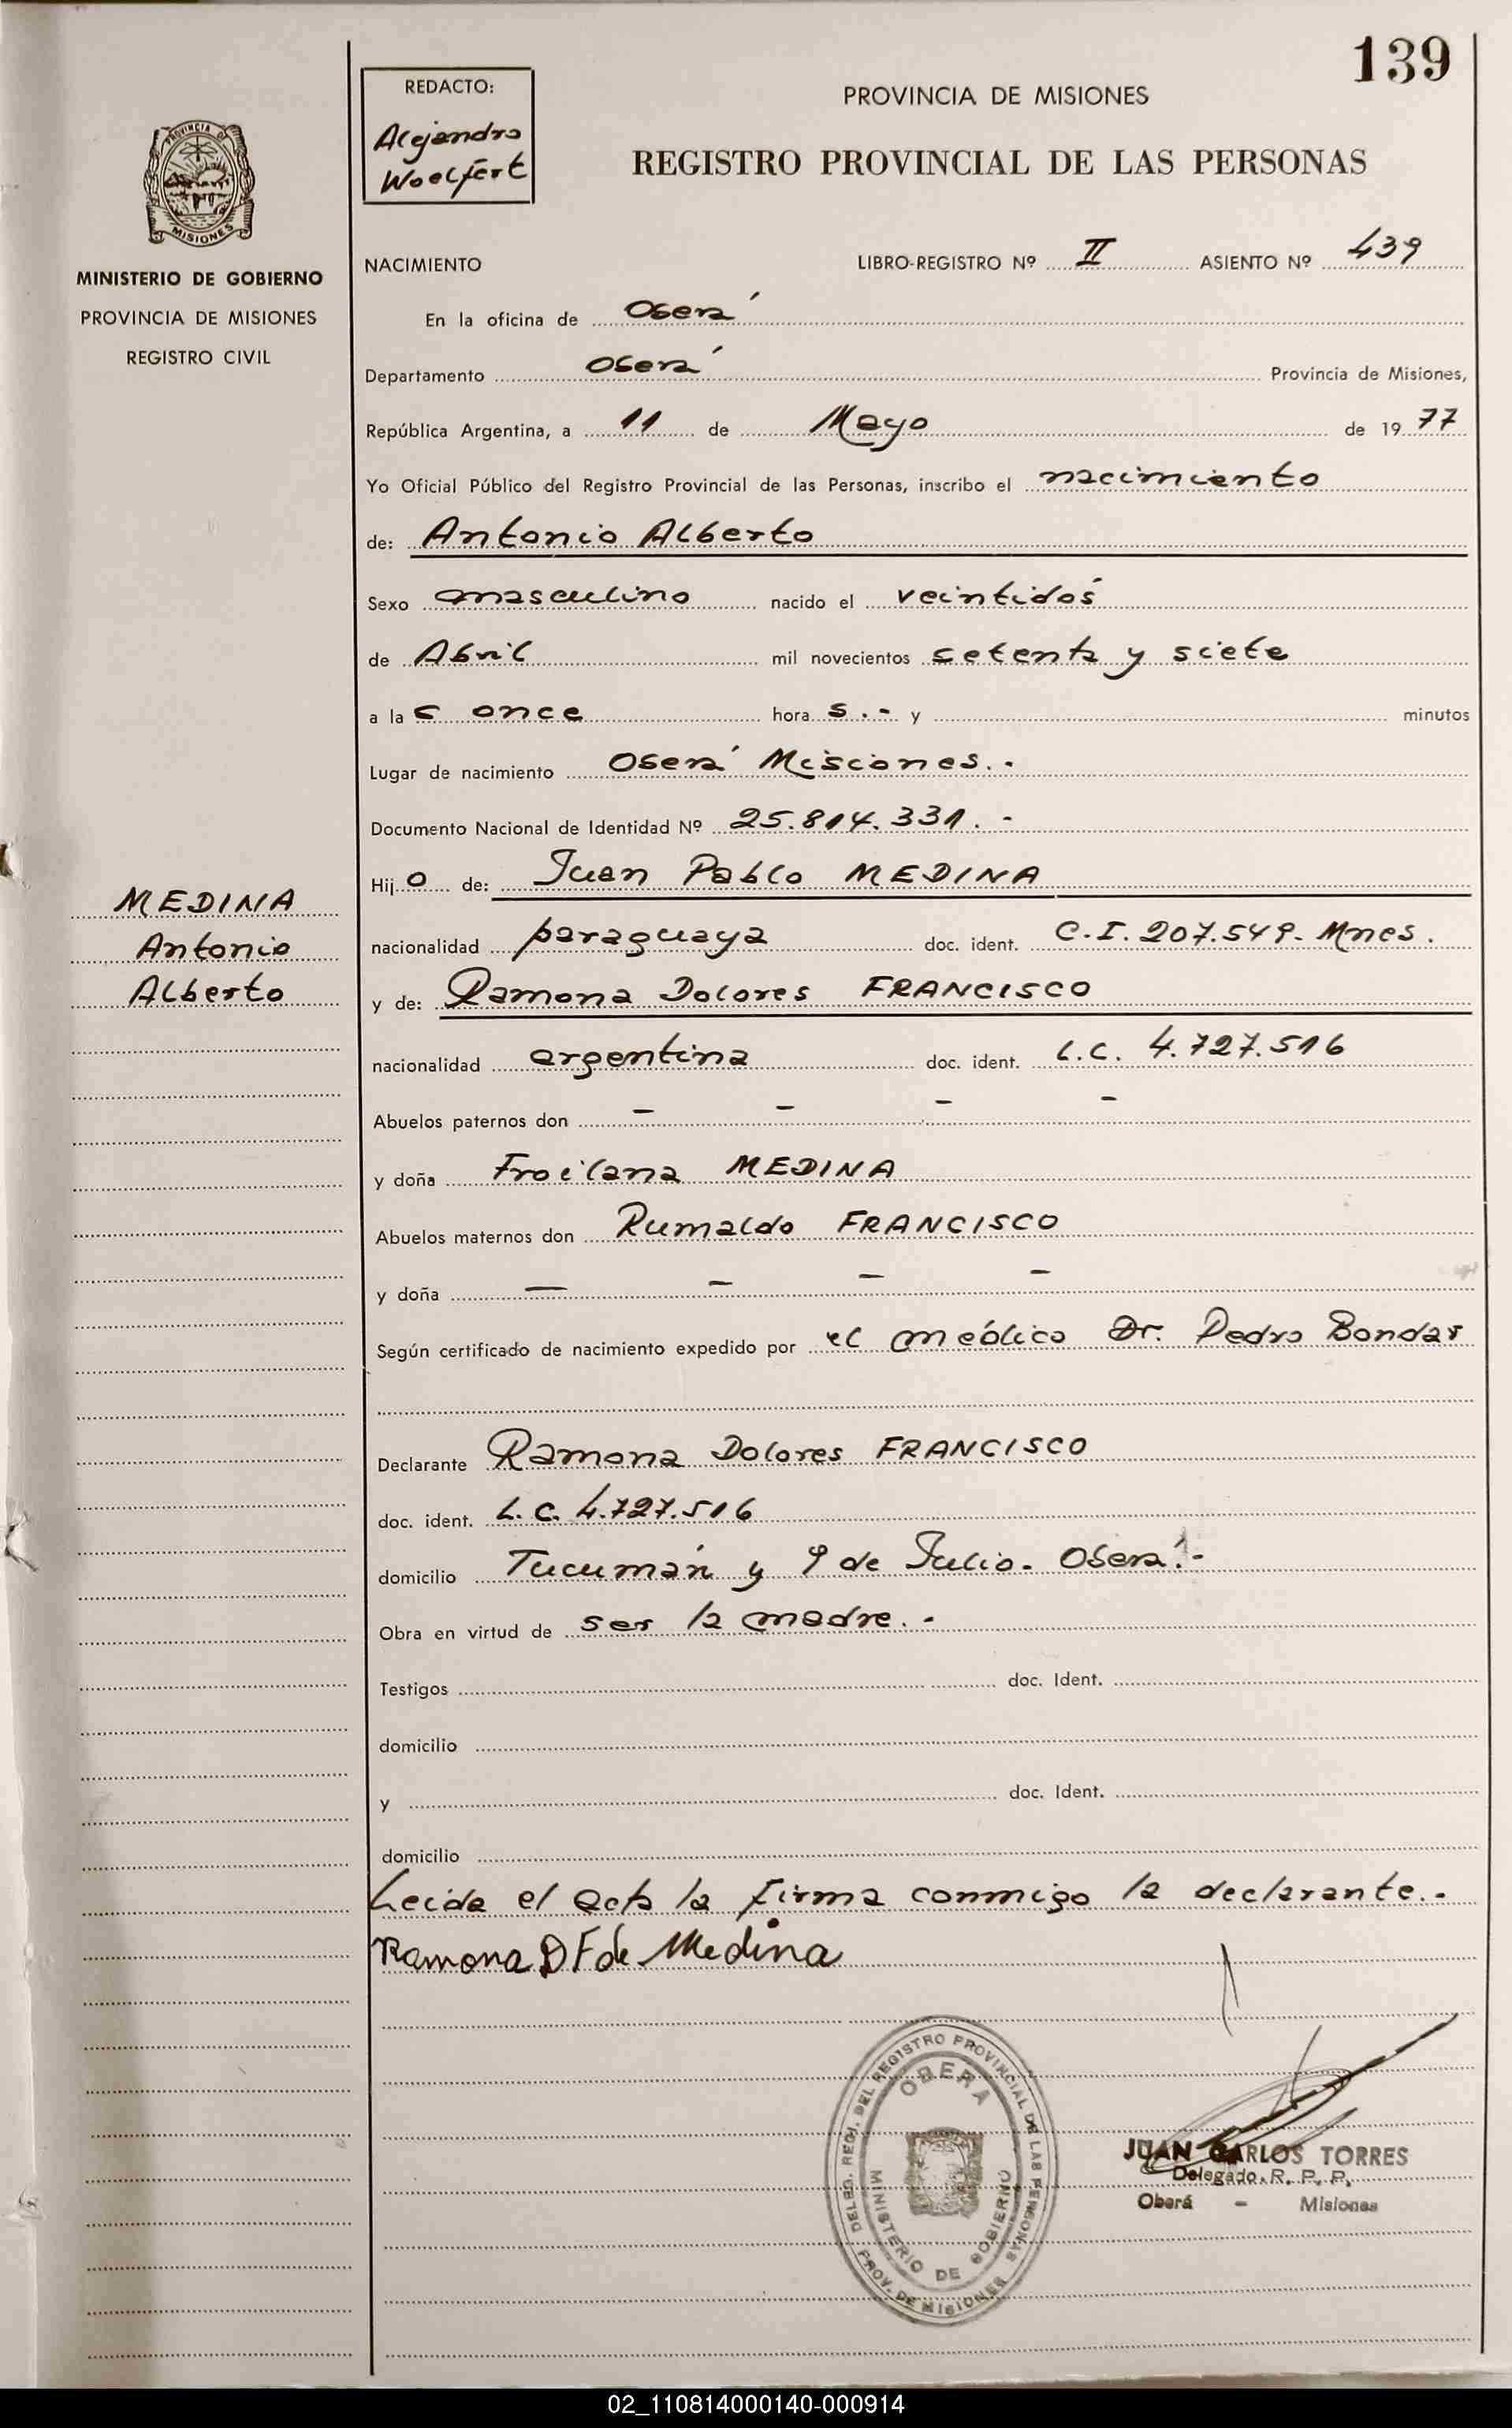 139
REDACTO:
Alejandro
Woelfert
PROVINCIA DE MISIONES
REGISTRO PROVINCIAL DE LAS PERSONAS
PROVINCIA DE MISIONES
MINISTERIO DE GOBIERNO
PROVINCIA DE MISIONES
REGISTRO CIVIL
NACIMIENTO LIBRO-REGISTRO Nº II ASIENTO Nº 439
En la oficina de Oberá
Departamento Oberá Provincia de Misiones,
República Argentina, a 11 de Mayo de 1977
Yo Oficial Público del Registro Provincial de las Personas, inscribo el nacimiento
de: Antonio Alberto
Sexo masculino nacido el veintidós
de Abril mil novecientos setenta y siete
a las once horas.- y minutos
Lugar de nacimiento Oberá Misiones.-
Documento Nacional de Identidad Nº 25.814.331.-
Hijo de: Juan Pablo MEDINA
MEDINA
Antonio
Alberto
nacionalidad paraguaya doc. ident. C.I. 207.549- Mnes.
y de: Ramona Dolores FRANCISCO
nacionalidad argentina doc. ident. L.C. 4.727.516
Abuelos paternos don - - - -
y doña Froilana MEDINA
Abuelos maternos don Rumaldo FRANCISCO
y doña - - - -
Según certificado de nacimiento expedido por el médico Dr. Pedro Bondar
Declarante Ramona Dolores FRANCISCO
doc. ident. L.C. 4.727.516
domicilio Tucumán y 9 de Julio. Oberá.-
Obra en virtud de ser la madre.-
Testigos doc. Ident.
domicilio
y doc. Ident.
domicilio
Leida el acta la firma conmigo la declarante.-
Ramona D F de Medina
DELEG. REGI. DEL REGISTRO PROVINCIAL DE LAS PERSONAS
OBERA
MINISTERIO DE GOBIERNO
PROV. DE MISIONES
JUAN CARLOS TORRES
Delegado R. P. P.
Oberá - Misiones
02_110814000140-000914